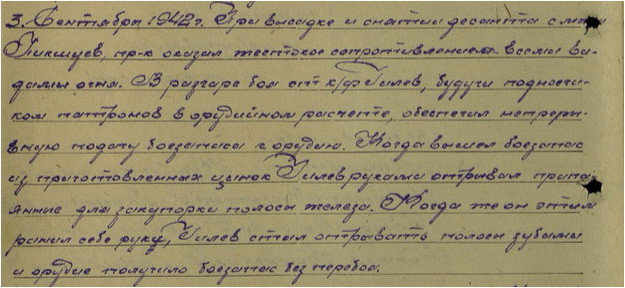 3. Сентября 1942 г. При высадке и снятии десанта с мыса
Пикшуев, пр-к оказал жестокое сопротивление всеми ви-
дами огня. В разгаре боя ст к/ф Гилев, будучи подносчи-
ком патронов в орудийном расчете, обеспечил непреры-
вную подачу боезапаса к орудию. Когда вышел боезапас
из приготовленных цинок Гилев руками отрывал припа-
янные для закупорки полосы железа. Когда же он этим
ранил себе руку, Гилев стал отрывать полосы зубами
и орудие получило боезапас без перебоя.